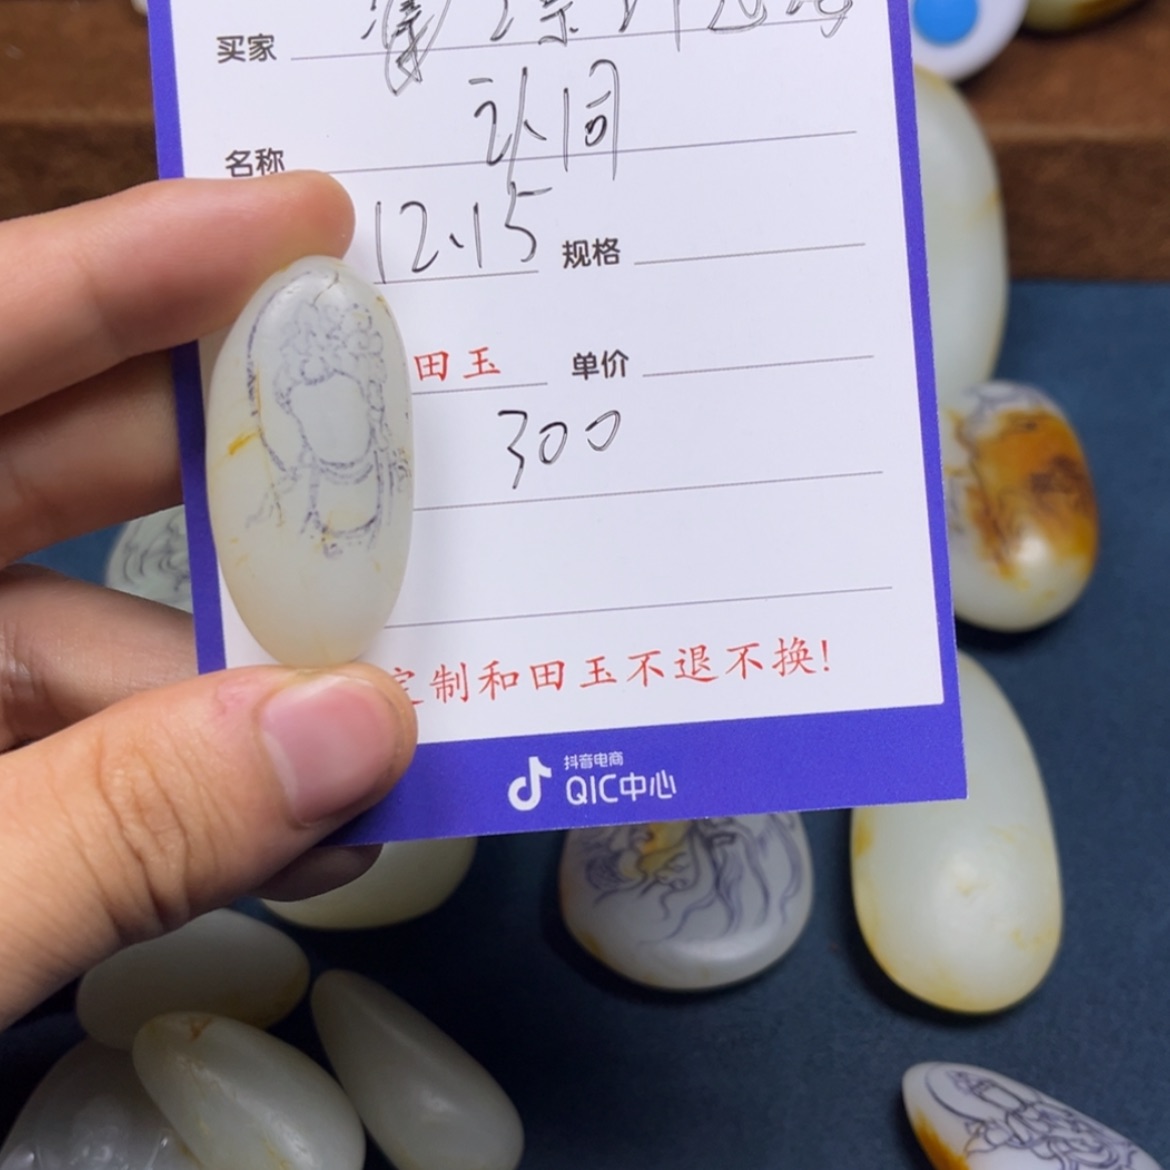 买家
认同
名称
12.15 规格
田玉 单价
300
定制和田玉不退不换!
抖音电商
QIC中心